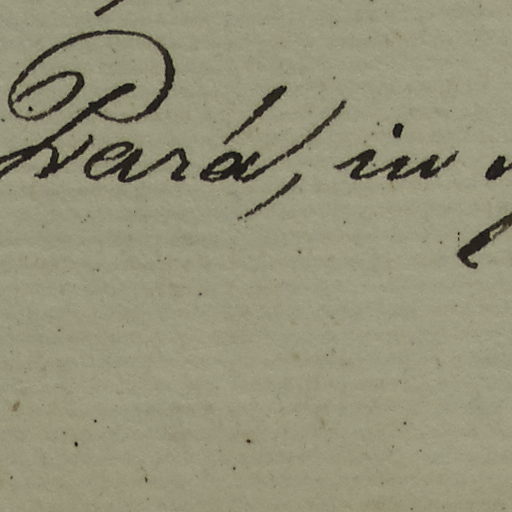 Pará), in